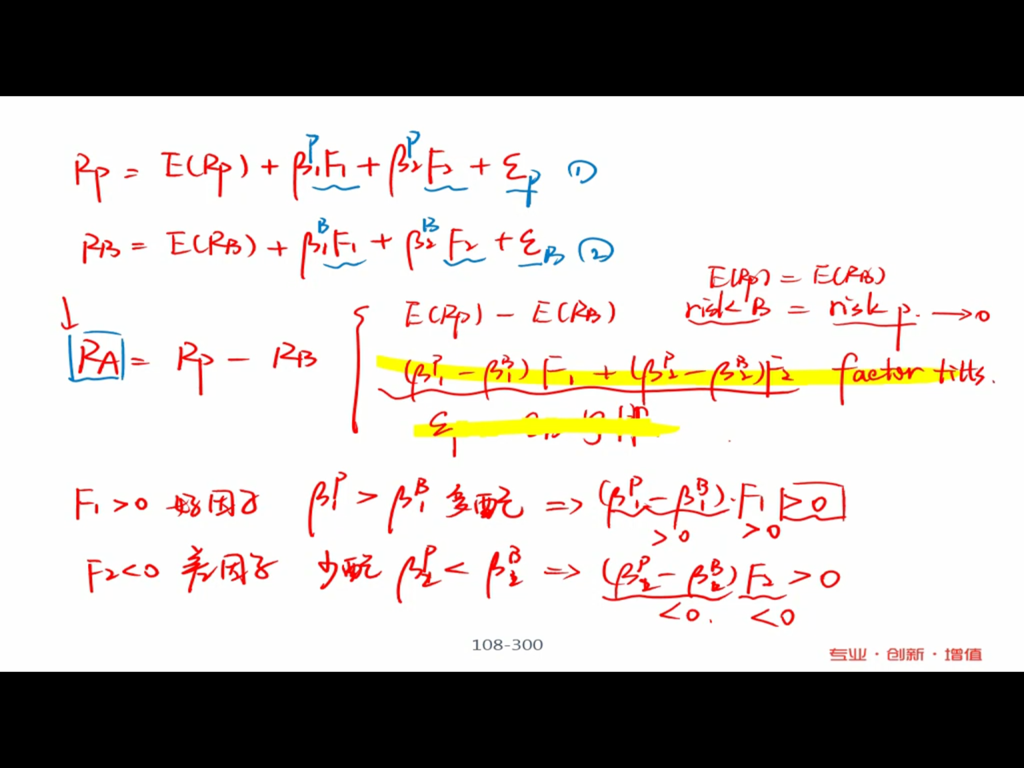 Rp = E(Rp) + β₁ᴾF₁ + β₂ᴾF₂ + εp ①
RB = E(RB) + β₁ᴮF₁ + β₂ᴮF₂ + εB ②
E(Rp) = E(RB)
E(Rp) − E(RB) risk B = risk p. → 0
RA = Rp − RB
(β₁ᴾ − β₁ᴮ) F₁ + (β₂ᴾ − β₂ᴮ)F₂ factor tilts.
F₁ > 0 好因子 β₁ᴾ > β₁ᴮ 多配 => (β₁ᴾ − β₁ᴮ)·F₁ > 0
> 0 > 0
F₂ < 0 差因子 少配 β₂ᴾ < β₂ᴮ => (β₂ᴾ − β₂ᴮ) F₂ > 0
< 0. < 0
108-300
专业·创新·增值